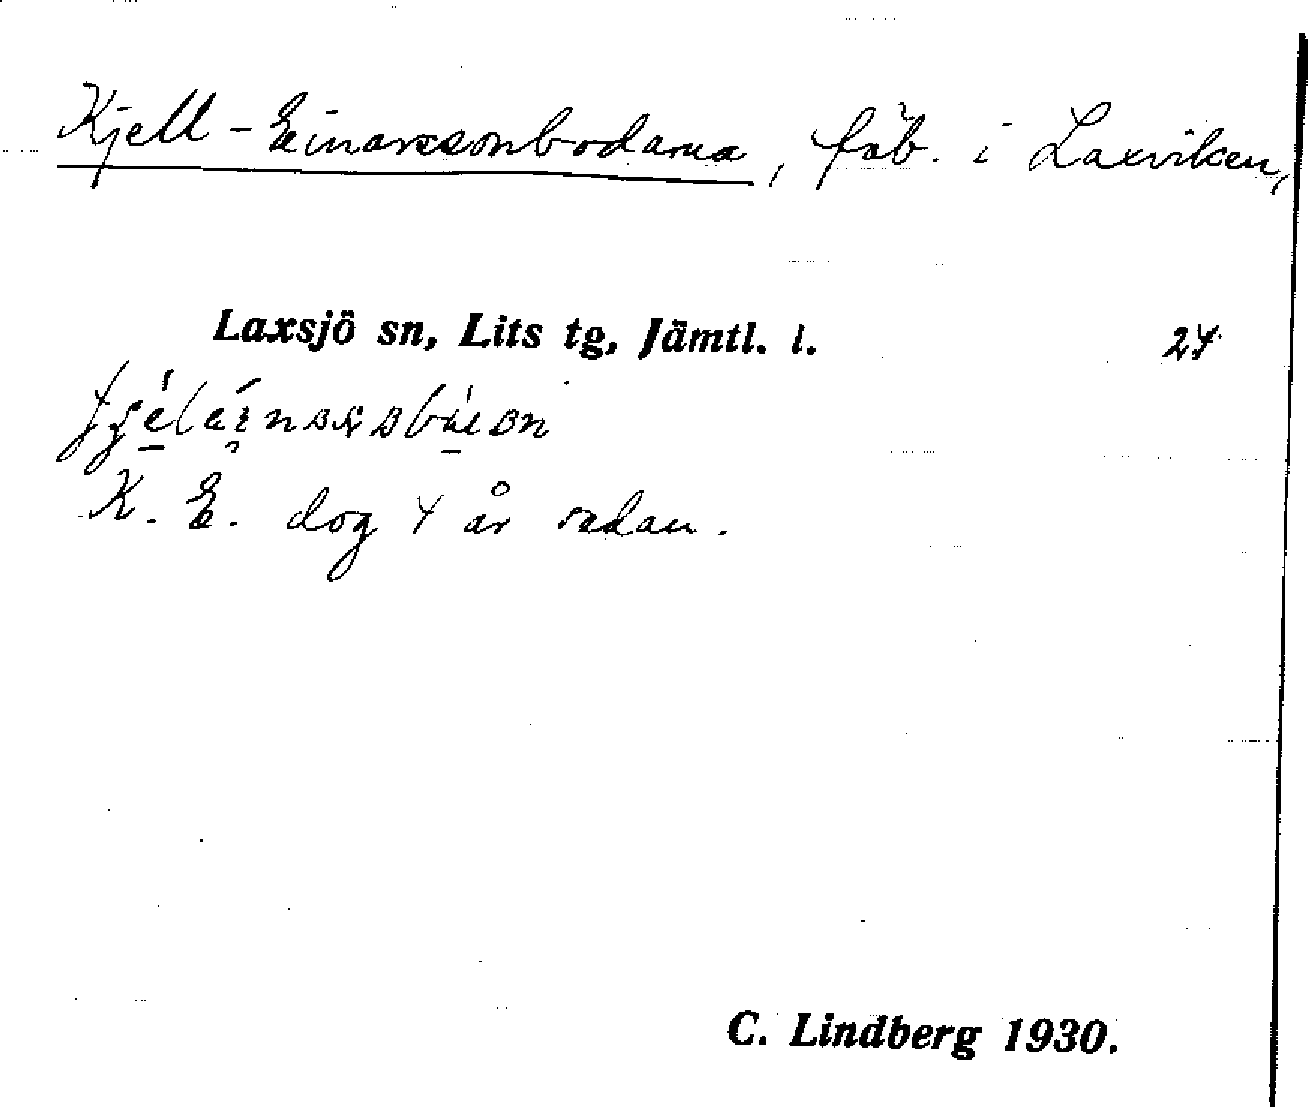 Kjell-Einarssonbodarna, fäb. i Laxviken,
Laxsjö sn, Lits tg, Jämtl. l. 24
K. E. dog 4 år sedan.
C. Lindberg 1930.